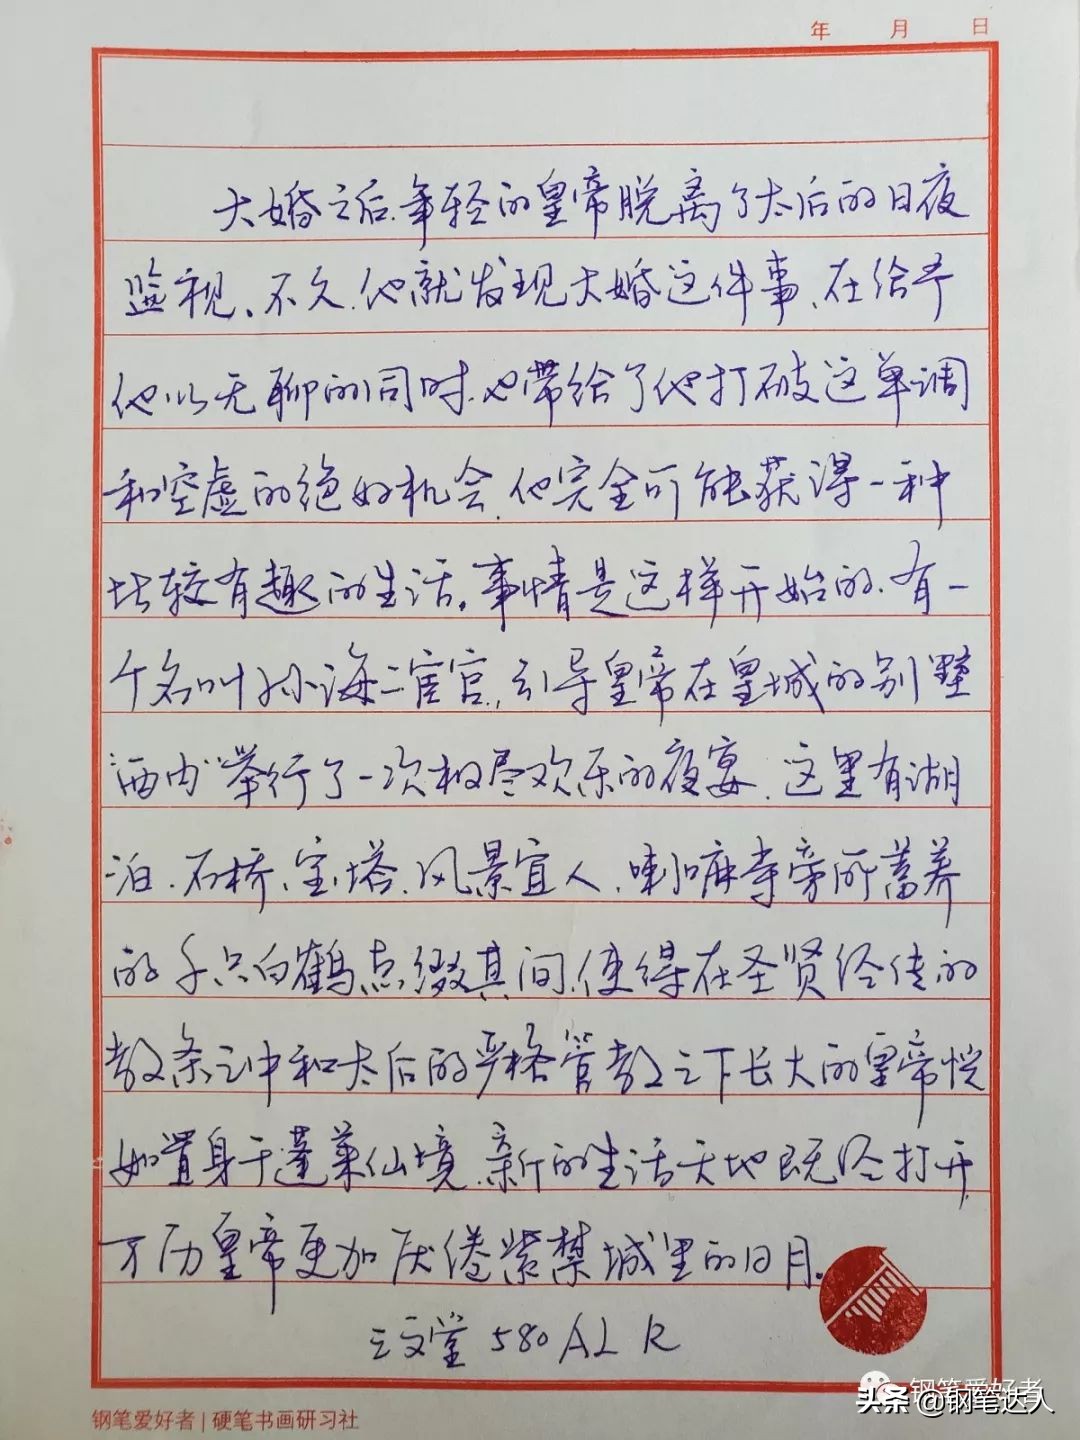 年 月 日
大婚之后、年轻的皇帝脱离了太后的日夜
监视、不久、他就发现大婚这件事、在给予
他以无聊的同时、也带给了他打破这单调
和空虚的绝好机会、他完全可能获得一种
比较有趣的生活。事情是这样开始的、有一
个名叫孙海二宦官、引导皇帝在皇城的别墅
“西内”举行了一次极尽欢乐的夜宴、这里有湖
泊、石桥、宝塔、风景宜人、喇嘛寺旁所蓄养
的千只白鹤点缀其间、使得在圣贤经传的
教条之中和太后的严格管教之下长大的皇帝恍
如置身于蓬莱仙境、新的生活天地既经打开
万历皇帝更加厌倦紫禁城里的日月。
三文堂 580 AL R
钢笔爱好者 | 硬笔书画研习社
钢笔爱好者
头条 @钢笔达人